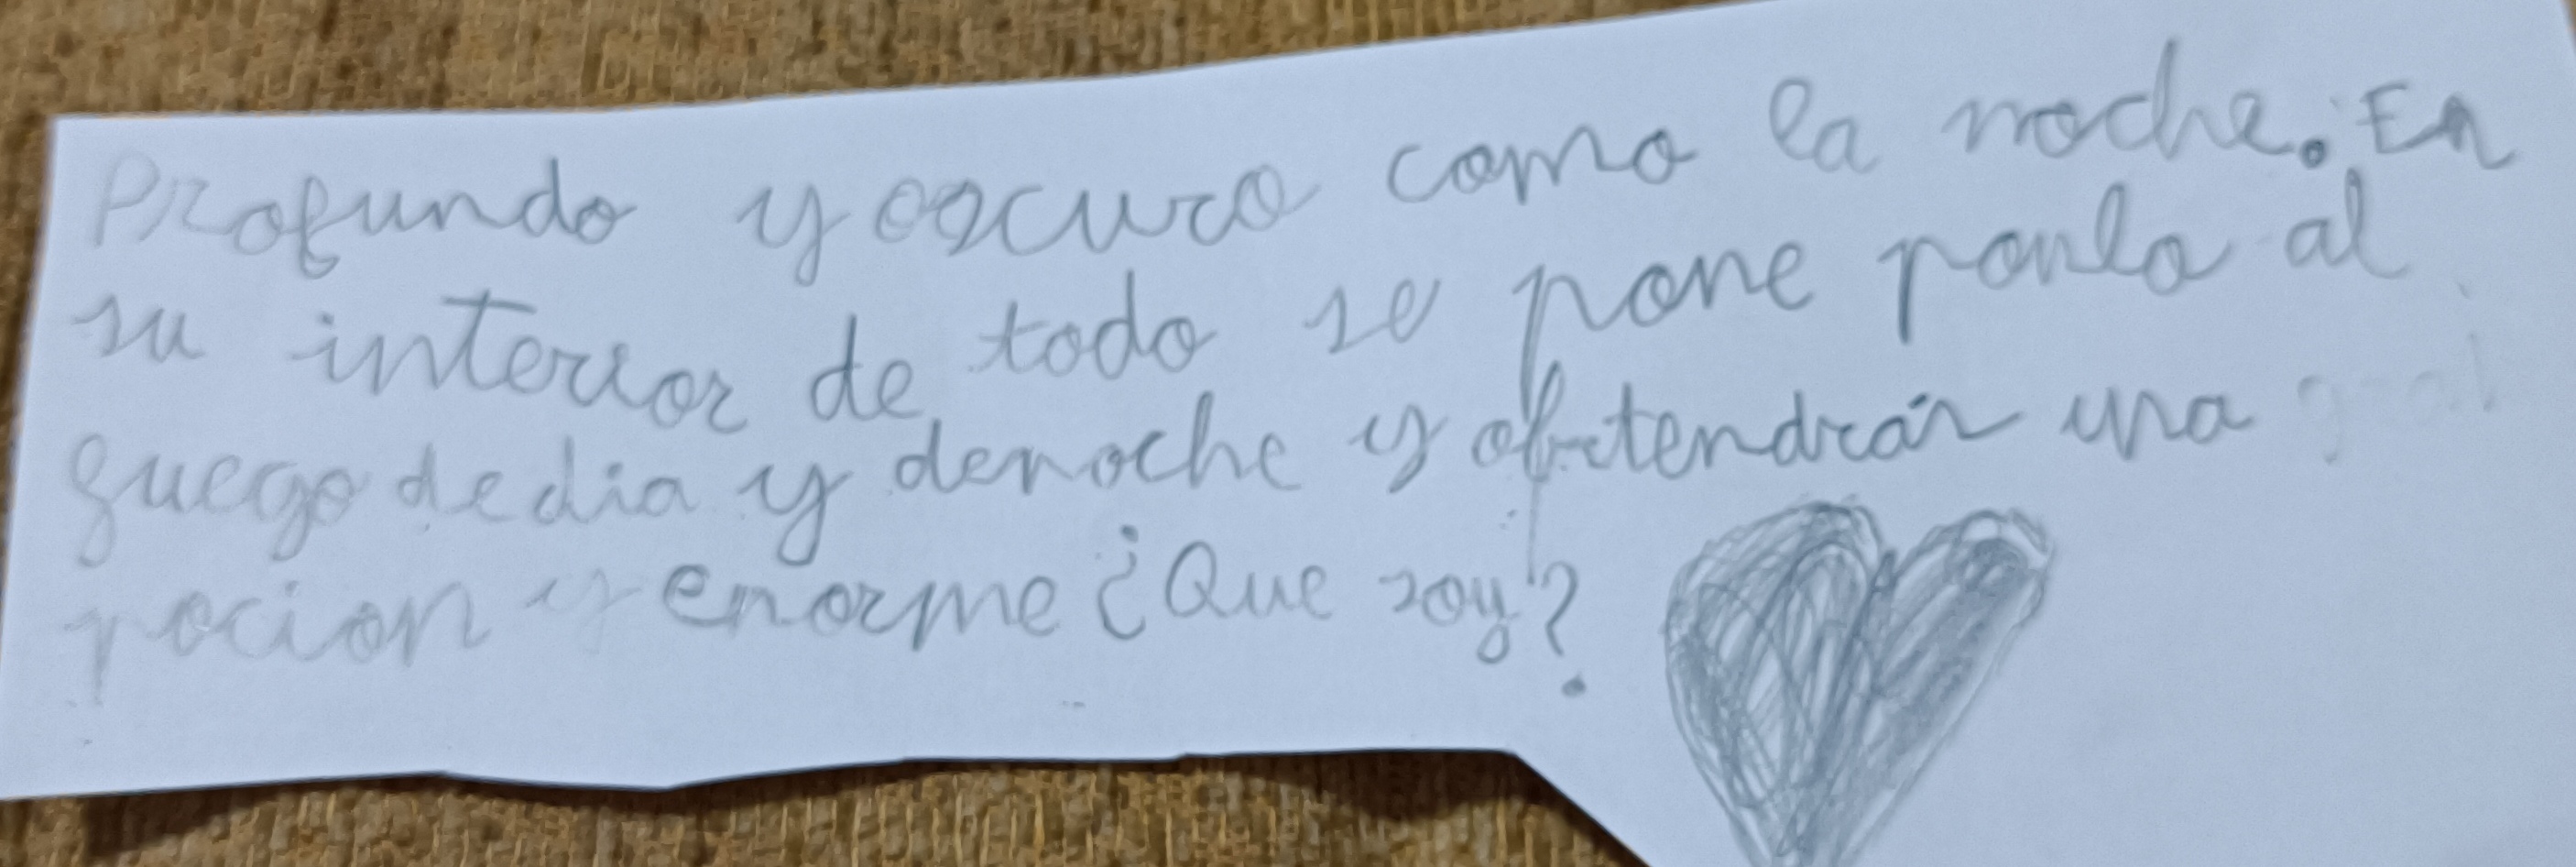 Profundo y oscuro como la noche. En
su interior de todo se pone ponlo al
fuego de dia y denoche y obtendrán una
pocion y enorme ¿Que soy?